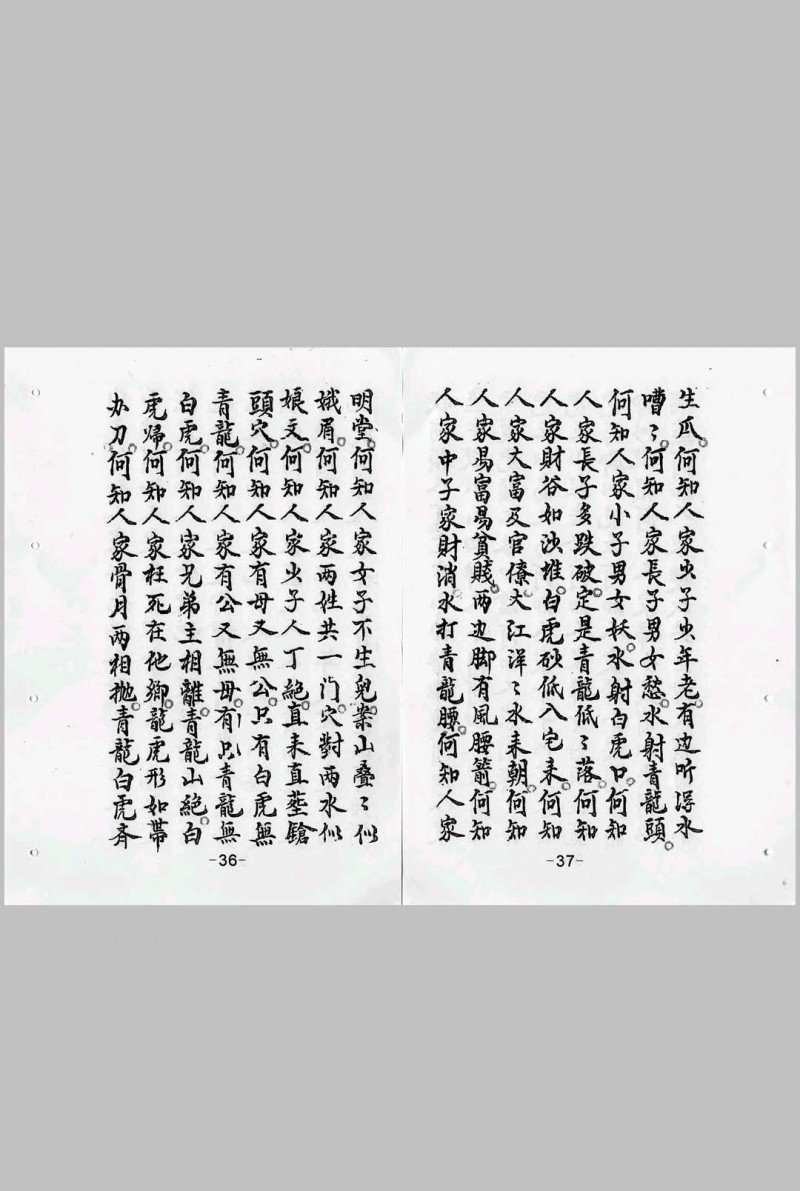 明堂。何知人家女子不生兒。案山叠々似
娥眉。何知人家两姓共一门。穴對两水似
娘文。何知人家少子人丁絕。直耒直塟鎗
頭穴。何知人家有母又無公。只有白虎無
青龍。何知人家有公又無母。有只青龍無
白虎。何知人家兄弟主相離。青龍山絕白
虎帰。何知人家枉死在他鄉。龍虎形如帶
办刀。何知人家骨月两相抛。青龍白虎斉
-36-
生瓜。何知人家少子少年老。有边听淂水
嘈々。何知人家長子男女愁。水射青龍頭。
何知人家小子男女妖。水射白虎口。何知
人家長子多跌破。定是青龍低々落。何知
人家財谷如沙堆。白虎砂低入宅耒。何知
人家大富及官僚。大江洋々水耒朝。何知
人家易富易貧賤。两边脚有風腰箭。何知
人家中子家財消。水打青龍腰。何知人家
-37-